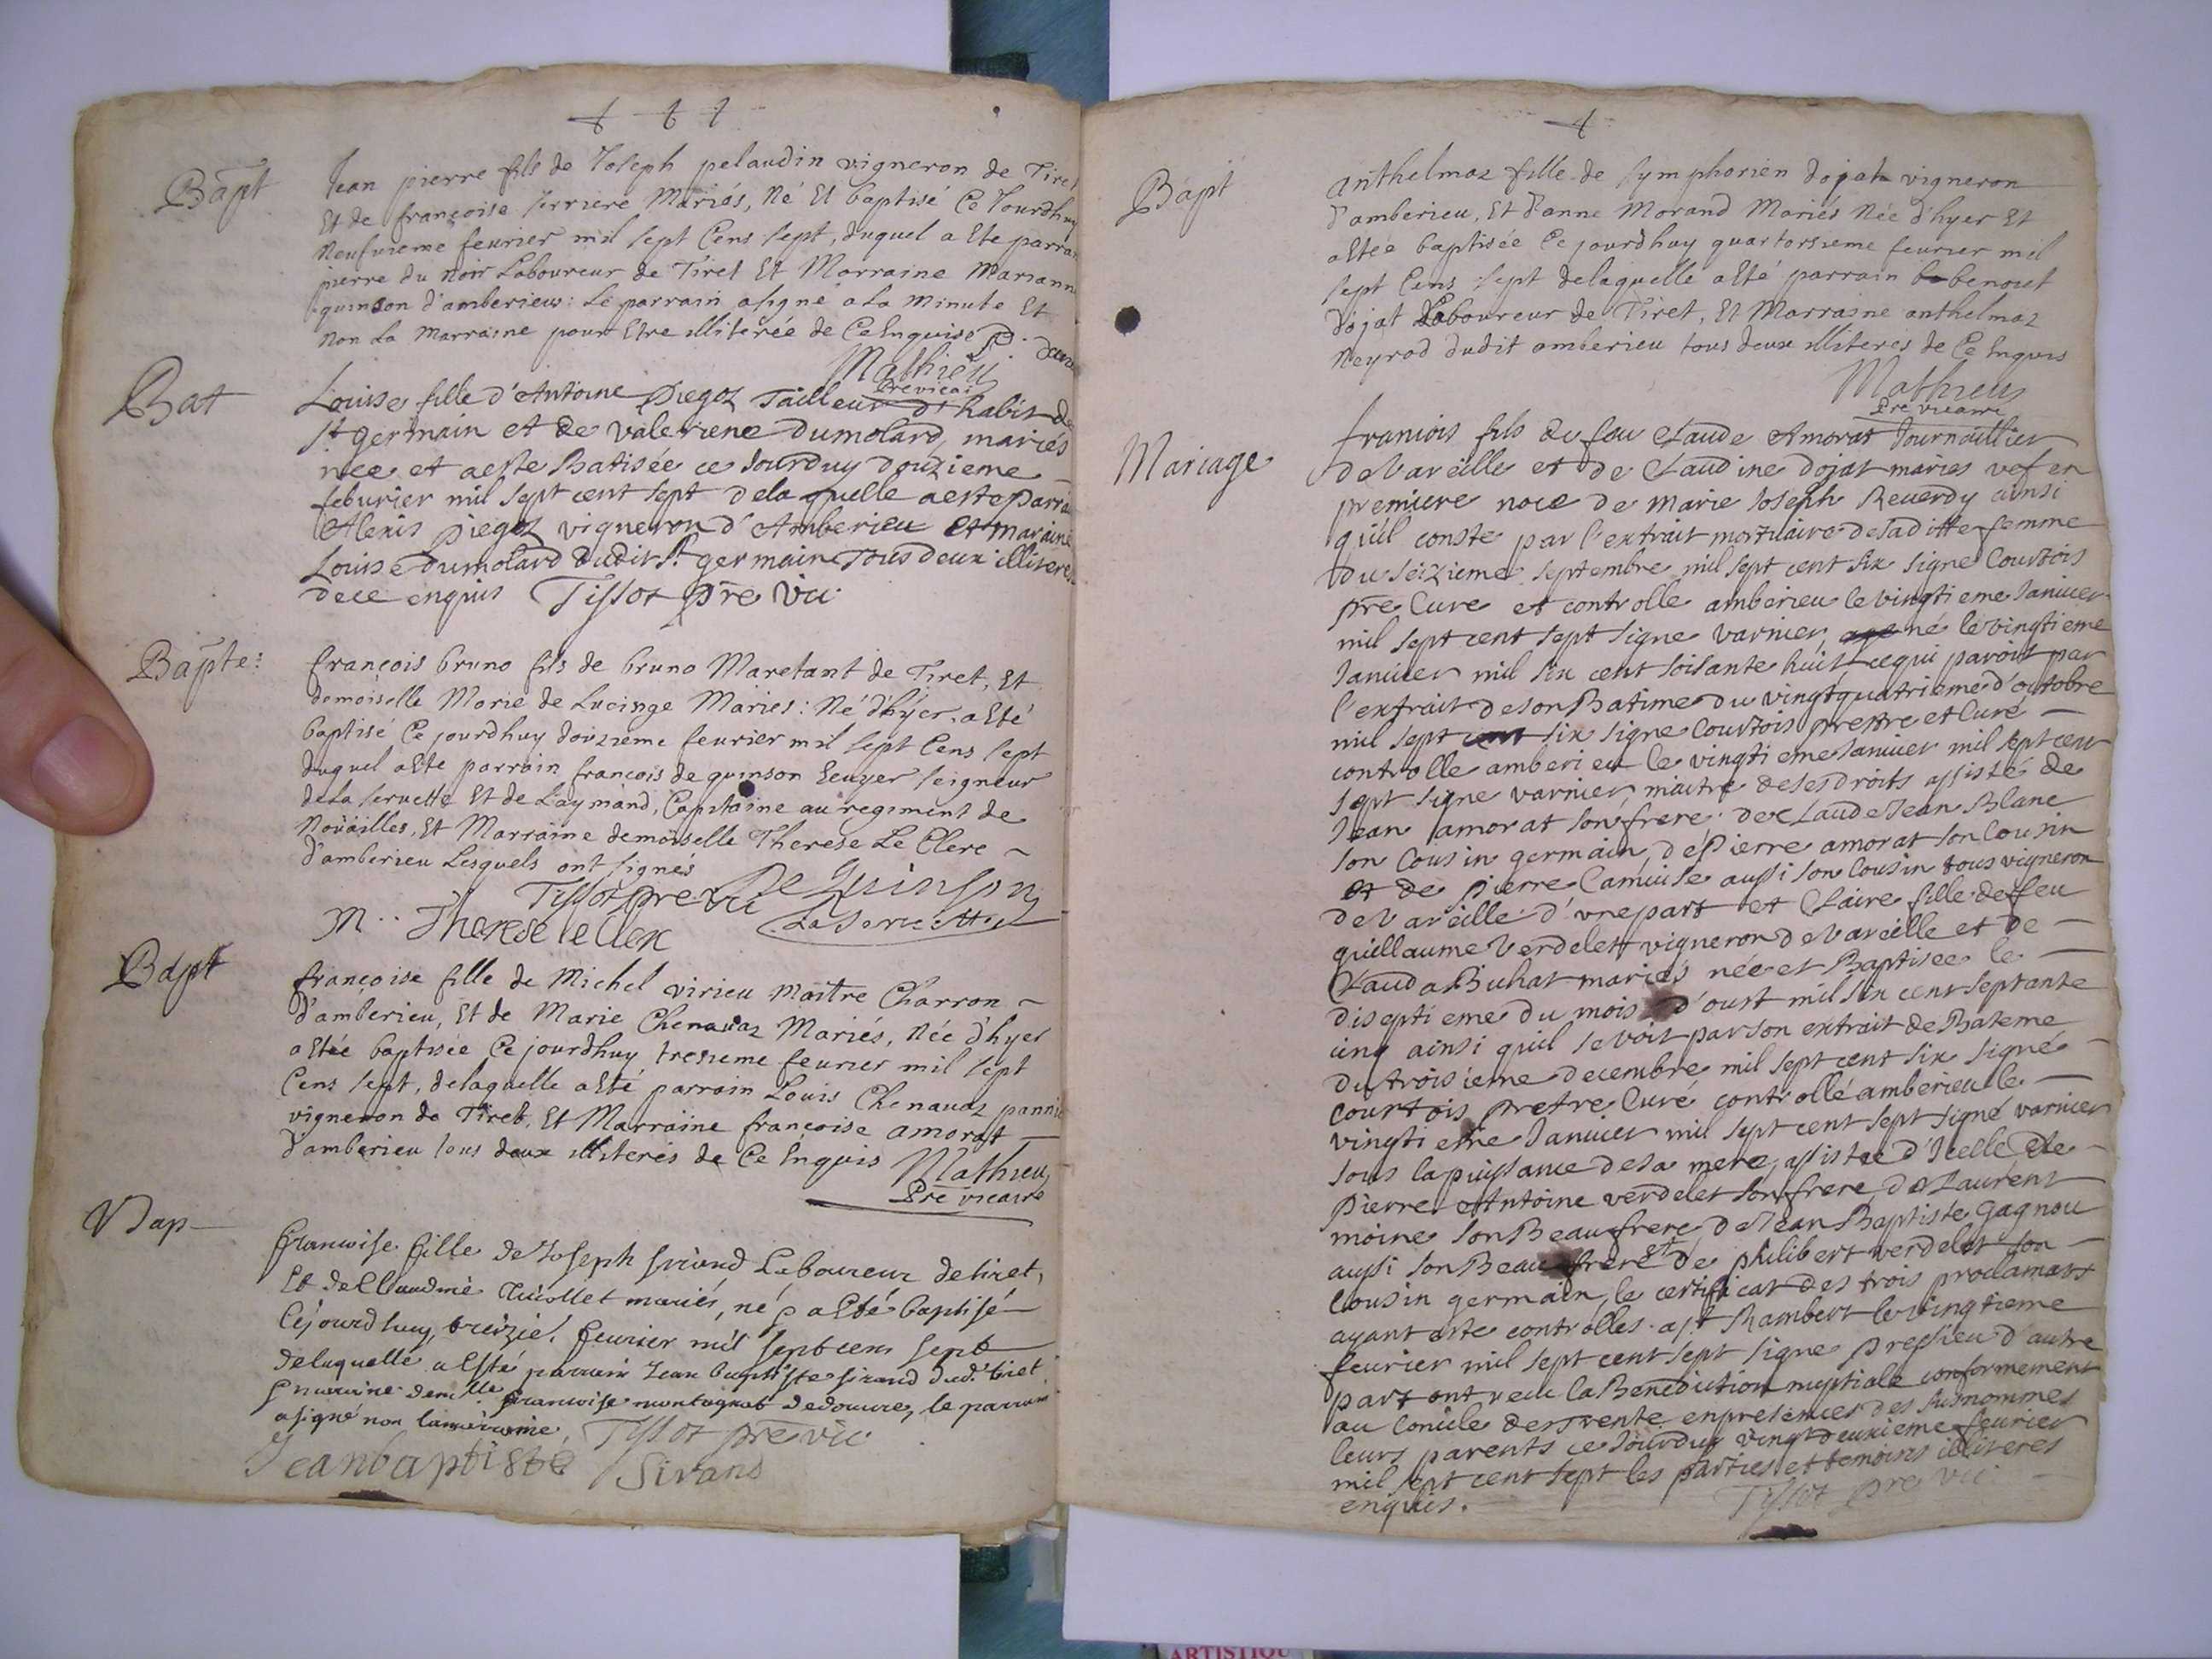 Bapt
Jean pierre fils de Joseph pelaudin vigneron de Tiret
Et de françoise ferriere Mariés, Né Et baptisé Ce Jourdhuy
Neufvieme feurier mil sept Cens sept, duquel a Ete parrain
pierre du noir Laboureur de Tiret Et Marraine Marianne
quinson d'amberieu: Le parrain a signé a La Minute Et
Non La Marraine pour Etre illiterée de Ce Enquise P.
Mathieu
Pre vicai
Bat
Louise fille d'Antoine Piegoz Tailleur d'habit de
St germain et de valeriene Dumolard mariés
née et aeste Batisée ce Jourduy douzieme
feburier mil sept cent sept dela quelle aeste parrain
Alexis piegoz vigneron d'Amberieu et maraine
Louise Dumolard dudit St germain Tous deux illiteres
dece enquis Tissot pre vic
Bapte:
françois bruno fils de bruno Maretant de Tiret, Et
demoiselle Marie de Lucinge Mariés: Né d'hyer, a Eté
baptisé Ce jourdhuy douzieme feurier mil sept Cens sept
duquel a Ete parrain françois de quinson Ecuyer seigneur
dela seruette Et de Laymand, Capitaine au regiment de
Noüailles, Et Marraine demoiselle Therese Le Clerc
d'amberieu Lesquels ont signés
Tissot pre vic De Quinson
M. Therese le Clerc La Servette
Bapt
françoise fille de Michel virieu Maître Charron
d'amberieu, Et de Marie Chenauaz Mariés, Née d'hyer
a Etée baptisée Ce jourdhuy tresieme feurier mil sept
Cens sept, delaquelle a Eté parrain Louis Chenauaz
vigneron de Tiret, Et Marraine françoise amorat
d'amberieu tous deux illiterés de Ce Enquis Mathieu
Pre vicaire
Bap
francoise fille de Joseph sirand Laboureur de tiret,
Et de Claudine mariés, né a Eté baptisé
Cejourdhuy, treizie. feurier mil sept cens sept
delaquelle a Esté parrain Jean baptiste sirand dud. tiret
marraine demlle francoise de douure, le parrain
a signé non la marraine, Tissot pre vic
Jean baptiste Sirand
Bapt
anthelmaz fille de symphorien dojat vigneron
d'amberieu, Et d'anne Morand Mariés Née d'hyer Et
a Etée baptisée Ce jourdhuy quartorsieme feurier mil
sept Cens sept delaquelle a Eté parrain benoit
dojat Laboureur de Tiret, Et Marraine anthelmaz
Neyrod dudit amberieu tous deux illiteres de Ce Enquis
Mathieu
Pre vicaire
Mariage
francois fils de feu Claude Amorat Journaillier
de Vareille et de Claudine dojat mariés vef en
premiere noce de marie Joseph Reuerdy ainsi
quil conste par l'extrait mortuaire de saditte femme
du seizieme septembre mil sept cent six signe Courtois
pre Cure et controlle amberieu le vingtieme Januier
mil sept cent sept signe varnier, né le vingtieme
Januier mil six cent soisante huit cequi parois par
l'extrait de son Batime du vingtquatrieme d'octobre
mil sept cent six signe Courtois prestre et Curé
controlle amberieu le vingtieme Januier mil sept cent
sept signe varnier, maitre de ses droits assisté de
Jean amorat son frere de Claude Jean Blanc
son Cousin germain, de Pierre amorat son Cousin
et de pierre Camuise aussi son Cousin tous vigneron
de Vareille d'vne part et Claire fille de feu
guillaume Verdelet vigneron de Vareille et de
Clauda Buhat mariés née et Baptisée le
diseptieme du mois d'oust mil six cent septante
ung ainsi quil se voit par son extrait de Bateme
du troisieme decembre mil sept cent six signé
Courtois pretre Curé controllé amberieu le
vingtieme Januier mil sept cent sept signé varnier
sous la puissance de sa mere, assistée d'Icelle de
Pierre Antoine verdelet son frere, de Laurent
moine son Beaufrere de Jean Baptiste gagnou
aussi son Beaufrere Et de philibert verdelet son
Cousin germain, le certificat des trois proclamats
ayant este controlles a St Rambert le vingtieme
feurier mil sept cent sept signe pressieu d'autre
part ont receu la Benediction nuptiale conformement
au Concile des Trente en presence des susnommes
leurs parents ce Jourduy vingtdeuxieme feurier
mil sept cent sept les parties et temoins illiteres
enquis. Tissot pre vic
ARTISTIQU